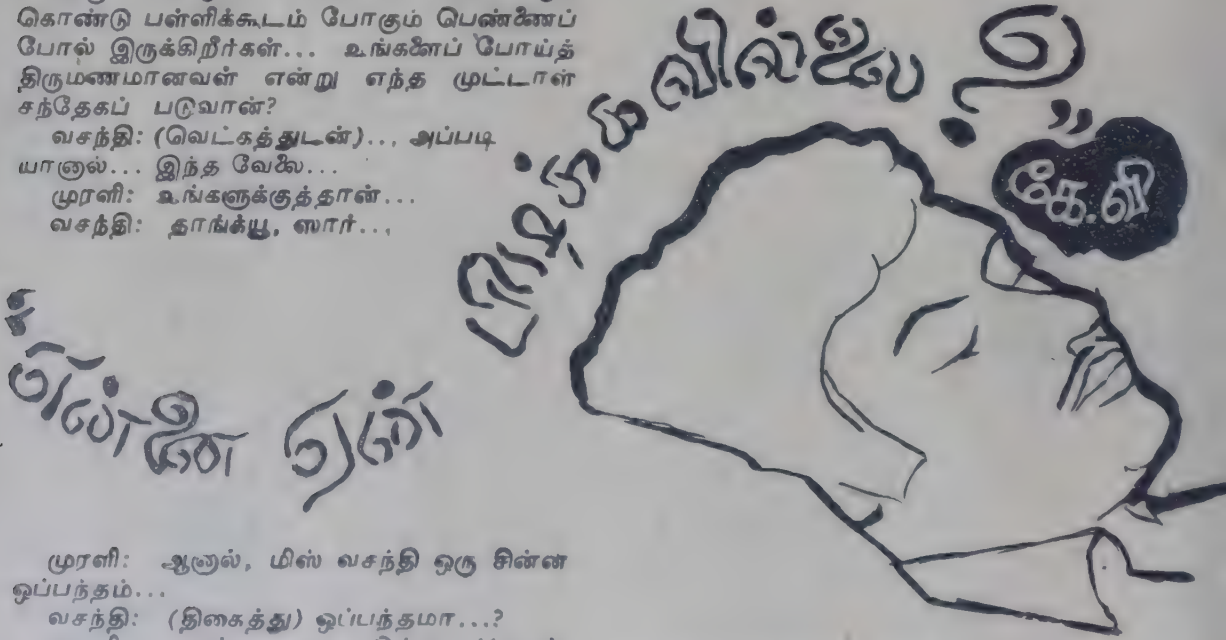 கொண்டு பள்ளிக்கூடம் போகும் பெண்ணைப்
போல் இருக்கிறீர்கள்... உங்களைப் போய்த்
திருமணமானவள் என்று எந்த முட்டாள்
சந்தேகப் படுவான்?
வசந்தி: (வெட்கத்துடன்)... அப்படி
யானால்... இந்த வேலை...
முரளி: உங்களுக்குத்தான்...
வசந்தி: தாங்க்யூ, ஸார்...
என்னை ஏன்
பார்க்கவில்லை?”
கே.வி
முரளி: ஆனால், மிஸ் வசந்தி ஒரு சின்ன
ஒப்பந்தம்...
வசந்தி: (திகைத்து) ஒப்பந்தமா...?